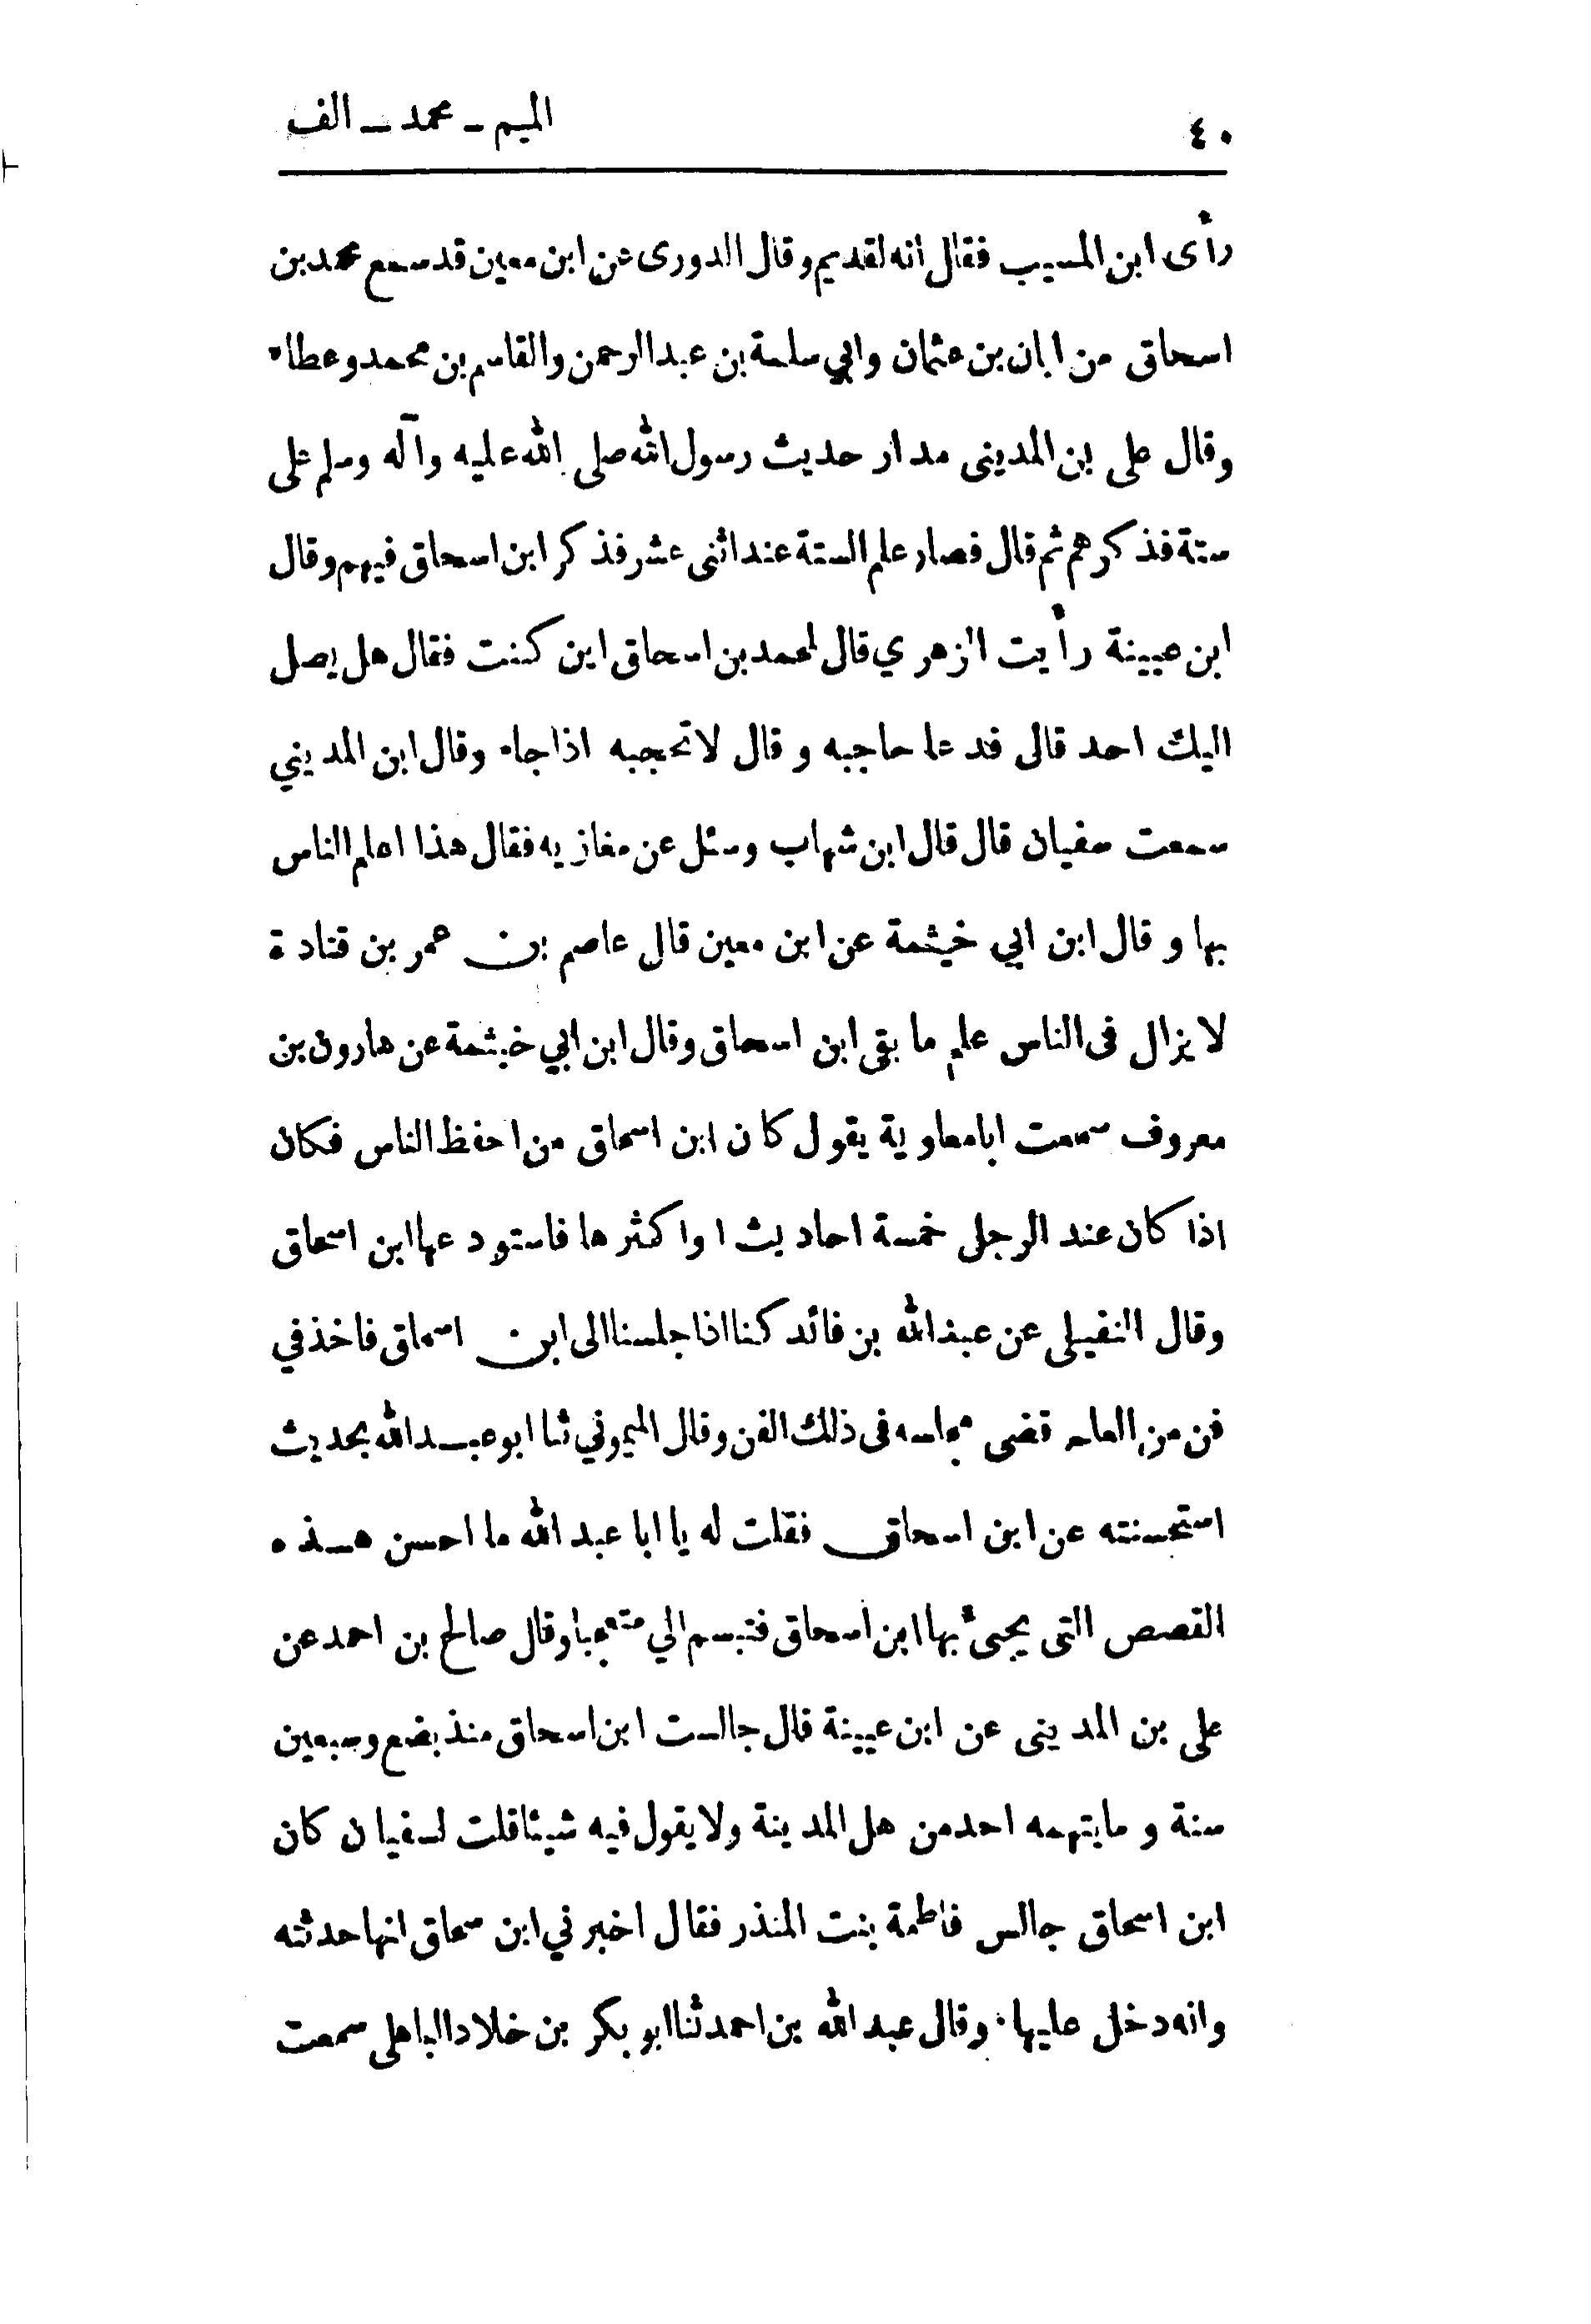 ٤٠
الميم ــ محمد ــ الف
رأى ابن المسيب فقال انه لقديم وقال الدورى عن ابن معين قد سمع محمد بن
اسحاق من ابان بن عثمان وابي سلمة بن عبد الرحمن والقاسم بن محمد وعطاء
وقال على بن المدينى مدار حديث رسول الله صلى الله عليه وآله وسلم على
ستة فذكرهم ثم قال فصار علم الستة عند اثنى عشر فذكر ابن اسحاق فيهم وقال
ابن عيينة رأيت الزهري قال لمحمد بن اسحاق اين كنت فقال هل يصل
اليك احد قال فدعا حاجبه وقال لا تحجبه اذا جاء وقال ابن المديني
سمعت سفيان قال قال ابن شهاب وسئل عن مغازيه فقال هذا اعلم الناس
بها وقال ابن ابي خيثمة عن ابن معين قال عاصم بن عمر بن قتادة
لا يزال فى الناس علم ما بقى ابن اسحاق وقال ابن ابي خيثمة عن هارون بن
معروف سمعت ابا معاوية يقول كان ابن اسحاق من احفظ الناس فكان
اذا كان عند الرجل خمسة احاديث او اكثرها فاستودعها ابن اسحاق
وقال النفيلى عن عبد الله بن فائد كنا اذا جلسنا الى ابن اسحاق فاخذ في
فن من العلم قضى مجلسه فى ذلك الفن وقال الميموني ثنا ابو عبد الله بحديث
استحسنته عن ابن اسحاق فقلت له يا ابا عبد الله ما احسن هذه
القصص التى يجىٔ بها ابن اسحاق فتبسم الي متعجبا وقال صالح بن احمد عن
على بن المدينى عن ابن عيينة قال جالست ابن اسحاق منذ بضع وسبعين
سنة وما يتهمه احد من هل المدينة ولا يقول فيه شيئا قلت لسفيان كان
ابن اسحاق جالس فاطمة بنت المنذر فقال اخبرني ابن سحاق انها حدثته
وانه دخل عليها· وقال عبد الله بن احمد ثنا ابو بكر بن خلاد الباهلى سمعت